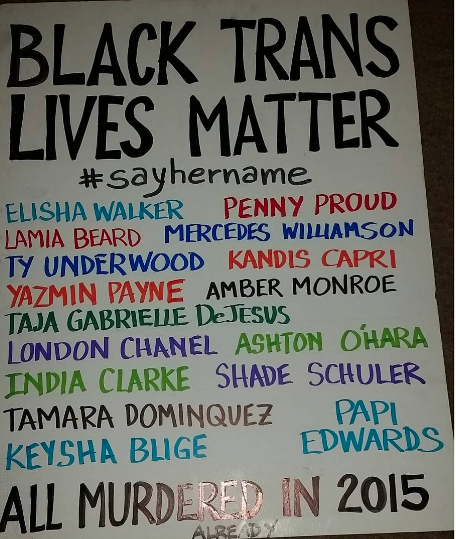 BLACK TRANS
LIVES MATTER
#sayhername
ELISHA WALKER PENNY PROUD
LAMIA BEARD MERCEDES WILLIAMSON
TY UNDERWOOD KANDIS CAPRI
YAZMIN PAYNE AMBER MONROE
TAJA GABRIELLE DeJESUS
LONDON CHANEL ASHTON O'HARA
INDIA CLARKE SHADE SCHULER
TAMARA DOMINQUEZ PAPI
KEYSHA BLIGE EDWARDS
ALL MURDERED IN 2015
ALREADY